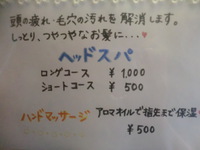 頭の疲れ・毛穴の汚れを解消します。
しっとり、つやつやなお髪に…♥
ヘッドスパ
ロングコース ¥1,000
ショートコース ¥500
ハンドマッサージ アロマオイルで指先まで保湿
¥500